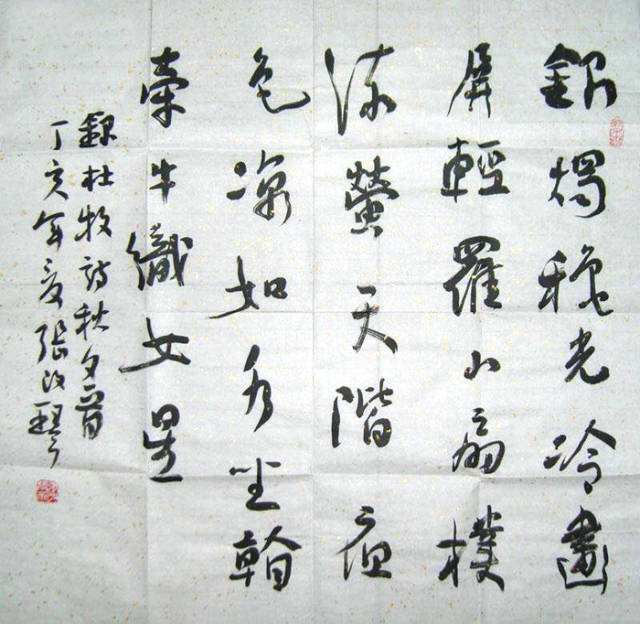 銀燭穐光冷畫
屏輕羅小扇撲
流螢天階夜
色涼如水坐看
牽牛織女星
錄杜牧詩秋夕一首
丁亥年夏張